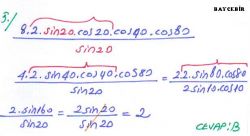 BAYCEBİR
3-)
8.2.sin20.cos20.cos40.cos80
sin20
4.2.sin40.cos40.cos80
sin20
=
2.2.sin80.cos80
2.sin160
sin20
=
2sin20
sin20
= 2
CEVAP:B